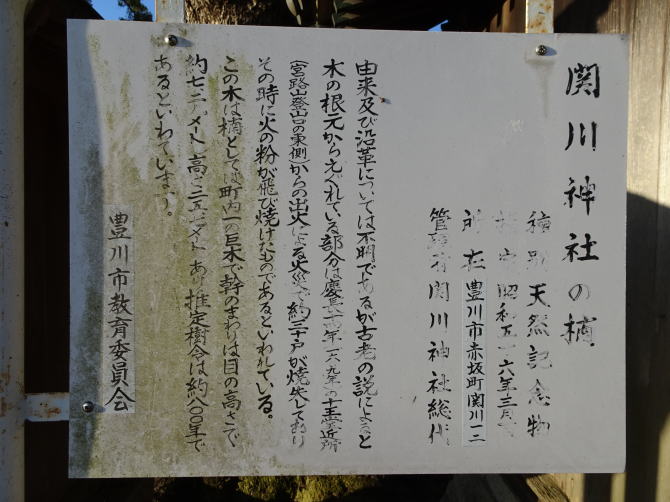 関川神社の楠
種別 天然記念物
指定 昭和五十六年三月
所在 豊川市赤坂町関川一二
管理者 関川神社総代
由来及び沿革については不明であるが古老の説によると
木の根元からえぐれている部分は慶長十四年(一六〇九年)の十王堂近所
(宮路山登山口の東側)からの出火による火災で約三十戸が焼失しており
その時に火の粉が飛び焼けたものであるといわれている。
この木は楠としては町内一の巨木で幹のまわりは目の高さで
約七・二メートル 高さ二五・メートル あり推定樹令は約八〇〇年で
あるといわれています。
豊川市教育委員会